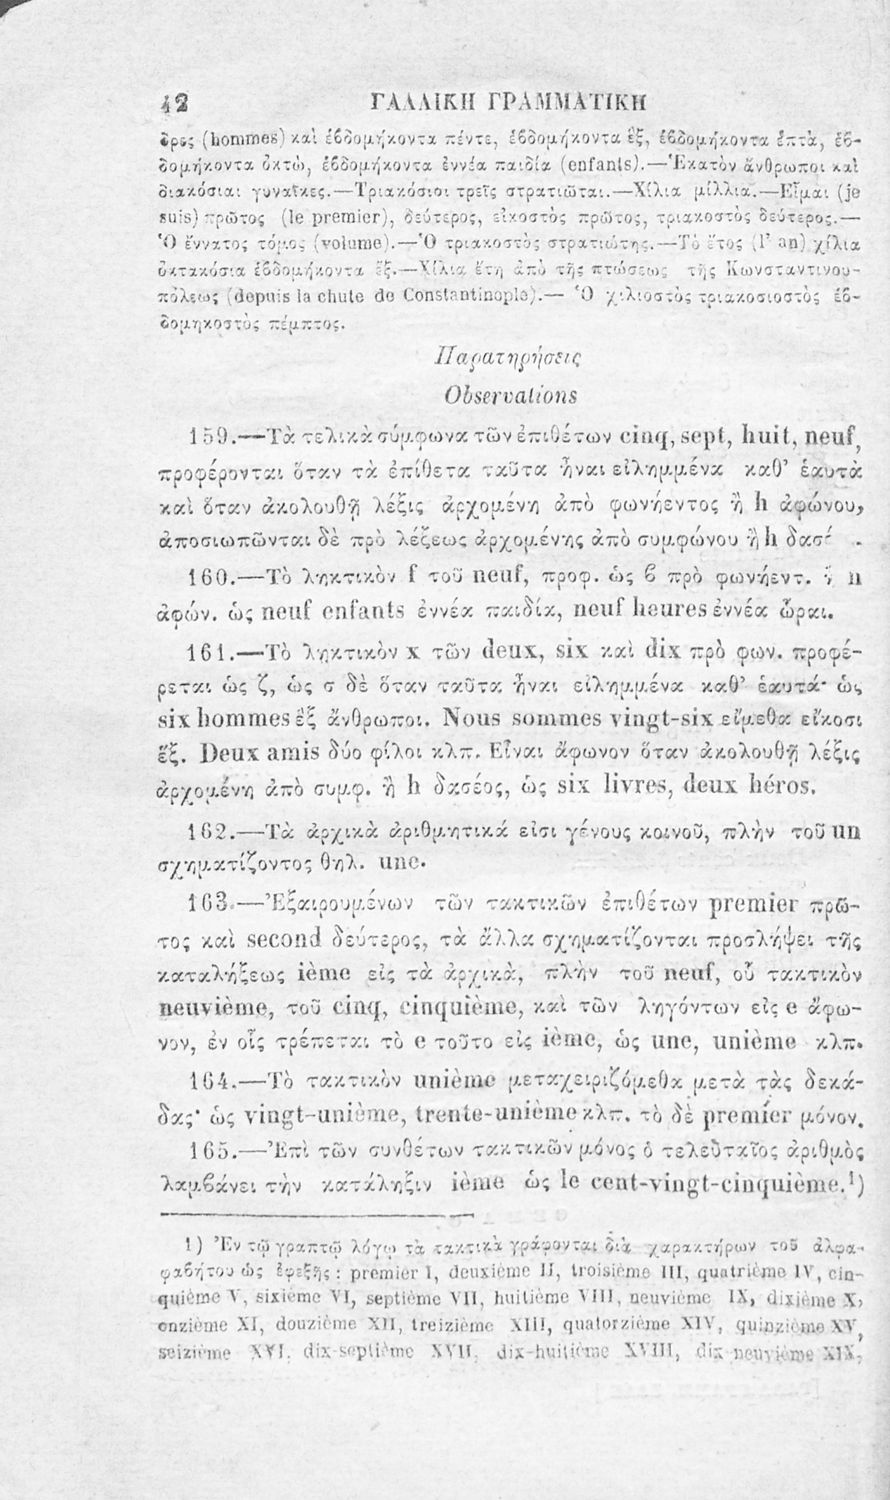 42 ΓΑΛΛΙΚΗ ΓΡΑΜΜΑΤΙΚΗ
δρες (hommes) καὶ ἑβδομήκοντα πέντε, ἑβδομήκοντα ἓξ, ἑβδομήκοντα ἑπτὰ, ἑβ-
δομήκοντα ὀκτὼ, ἑβδομήκοντα ἐννέα παιδία (enfants).—Ἑκατὸν ἄνθρωποι καὶ
διακόσιαι γυναῖκες.—Τριακόσιοι τρεῖς στρατιῶται.—Χίλια μίλλια.—Εἶμαι (je
suis) πρῶτος (le premier), δεύτερος, εἰκοστὸς πρῶτος, τριακοστὸς δεύτερος.—
Ὁ ἔννατος τόμος (volume).—Ὁ τριακοστὸς στρατιώτης.—Τὸ ἔτος (l' an) χίλια
ὀκτακόσια ἑβδομήκοντα ἕξ.—Χίλια ἔτη ἀπὸ τῆς πτώσεως τῆς Κωνσταντινου-
πόλεως (depuis la chute de Constantinople).— Ὁ χιλιοστὸς τριακοσιοστὸς ἑβ-
δομηκοστὸς πέμπτος.
Παρατηρήσεις
Observations
159.—Τὰ τελικὰ σύμφωνα τῶν ἐπιθέτων cinq, sept, huit, neuf,
προφέρονται ὅταν τὰ ἐπίθετα ταῦτα ἦναι εἰλημμένα καθ' ἑαυτὰ
καὶ ὅταν ἀκολουθῇ λέξις ἀρχομένη ἀπὸ φωνήεντος ἢ h ἀφώνου,
ἀποσιωπῶνται δὲ πρὸ λέξεως ἀρχομένης ἀπὸ συμφώνου ἢ h
160.—Τὸ ληκτικὸν f τοῦ neuf, προφ. ὡς β πρὸ φωνήεντ. ἢ h
ἀφών. ὡς neuf enfants ἐννέα παιδία, neuf heures ἐννέα ὧραι.
161.—Τὸ ληκτικὸν x τῶν deux, six καὶ dix πρὸ φων. προφέ-
ρεται ὡς ζ, ὡς σ δὲ ὅταν ταῦτα ἦναι εἰλημμένα καθ' ἑαυτά· ὡς
six hommes ἓξ ἄνθρωποι. Nous sommes vingt-six εἴμεθα εἴκοσι
ἕξ. Deux amis δύο φίλοι κλπ. Εἶναι ἄφωνον ὅταν ἀκολουθῇ λέξις
ἀρχομένη ἀπὸ συμφ. ἢ h δασέος, ὡς six livres, deux héros.
162.—Τὰ ἀρχικὰ ἀριθμητικά εἰσι γένους κοινοῦ, πλὴν τοῦ un
σχηματίζοντος θηλ. une.
163.—Ἐξαιρουμένων τῶν τακτικῶν ἐπιθέτων premier πρῶ-
τος καὶ second δεύτερος, τὰ ἄλλα σχηματίζονται προσλήψει τῆς
καταλήξεως ième εἰς τὰ ἀρχικὰ, πλὴν τοῦ neuf, οὗ τακτικὸν
neuvième, τοῦ cinq, cinquième, καὶ τῶν ληγόντων εἰς e ἄφω-
νον, ἐν οἷς τρέπεται τὸ e τοῦτο εἰς ième, ὡς une, unième κλπ.
164.—Τὸ τακτικὸν unième μεταχειριζόμεθα μετὰ τὰς δεκά-
δας· ὡς vingt-unième, trente-unième κλπ. τὸ δὲ premier μόνον.
165.—Ἐπὶ τῶν συνθέτων τακτικῶν μόνος ὁ τελευταῖος ἀριθμὸς
λαμβάνει τὴν κατάληξιν ième ὡς le cent-vingt-cinquième.¹)
1) Ἐν τῷ γραπτῷ λόγῳ τὰ τακτικὰ γράφονται διὰ χαρακτήρων τοῦ ἀλφα-
φαβήτου ὡς ἐφεξῆς : premier I, deuxième II, troisième III, quatrième IV, cin-
quième V, sixième VI, septième VII, huitième VIII, neuvième IX, dixième X,
onzième XI, douzième XII, treizième XIII, quatorzième XIV, quinzième XV,
seizième XVI, dix-septième XVII, dix-huitième XVIII, dix neuvième XIX,